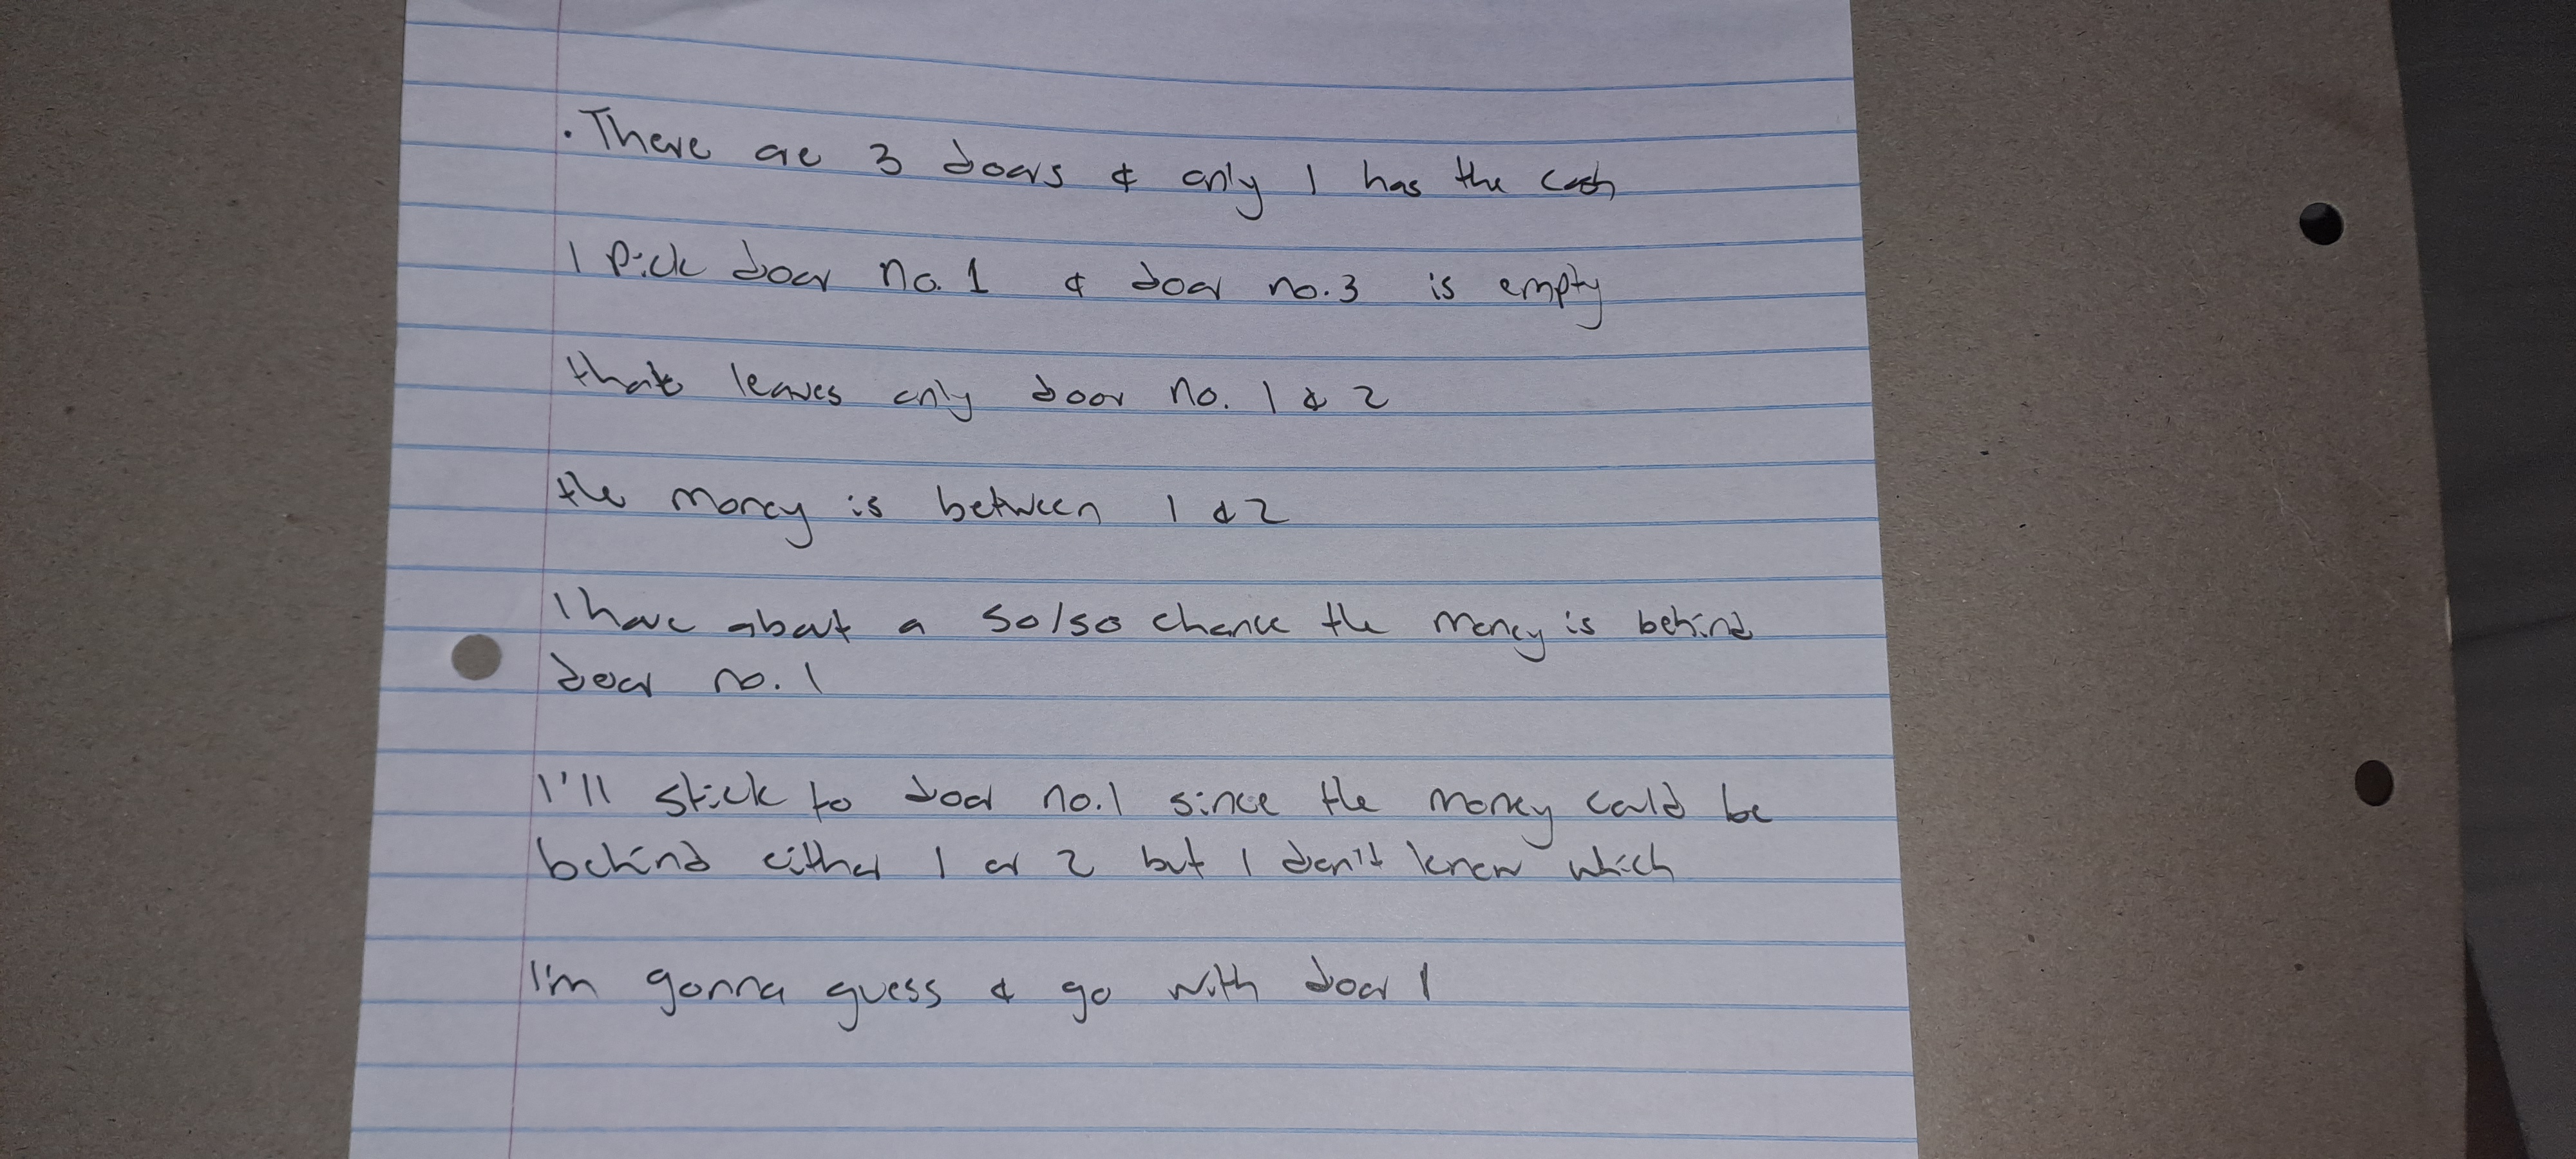 . There are 3 doors & only 1 has the cash
I pick door no. 1 & door no. 3 is empty
that leaves only door no. 1 & 2
the money is between 1 & 2
I have about a 50/50 chance the money is behind
door no. 1
I'll stick to door no. 1 since the money could be
behind either 1 or 2 but I don't know which
I'm gonna guess & go with door 1